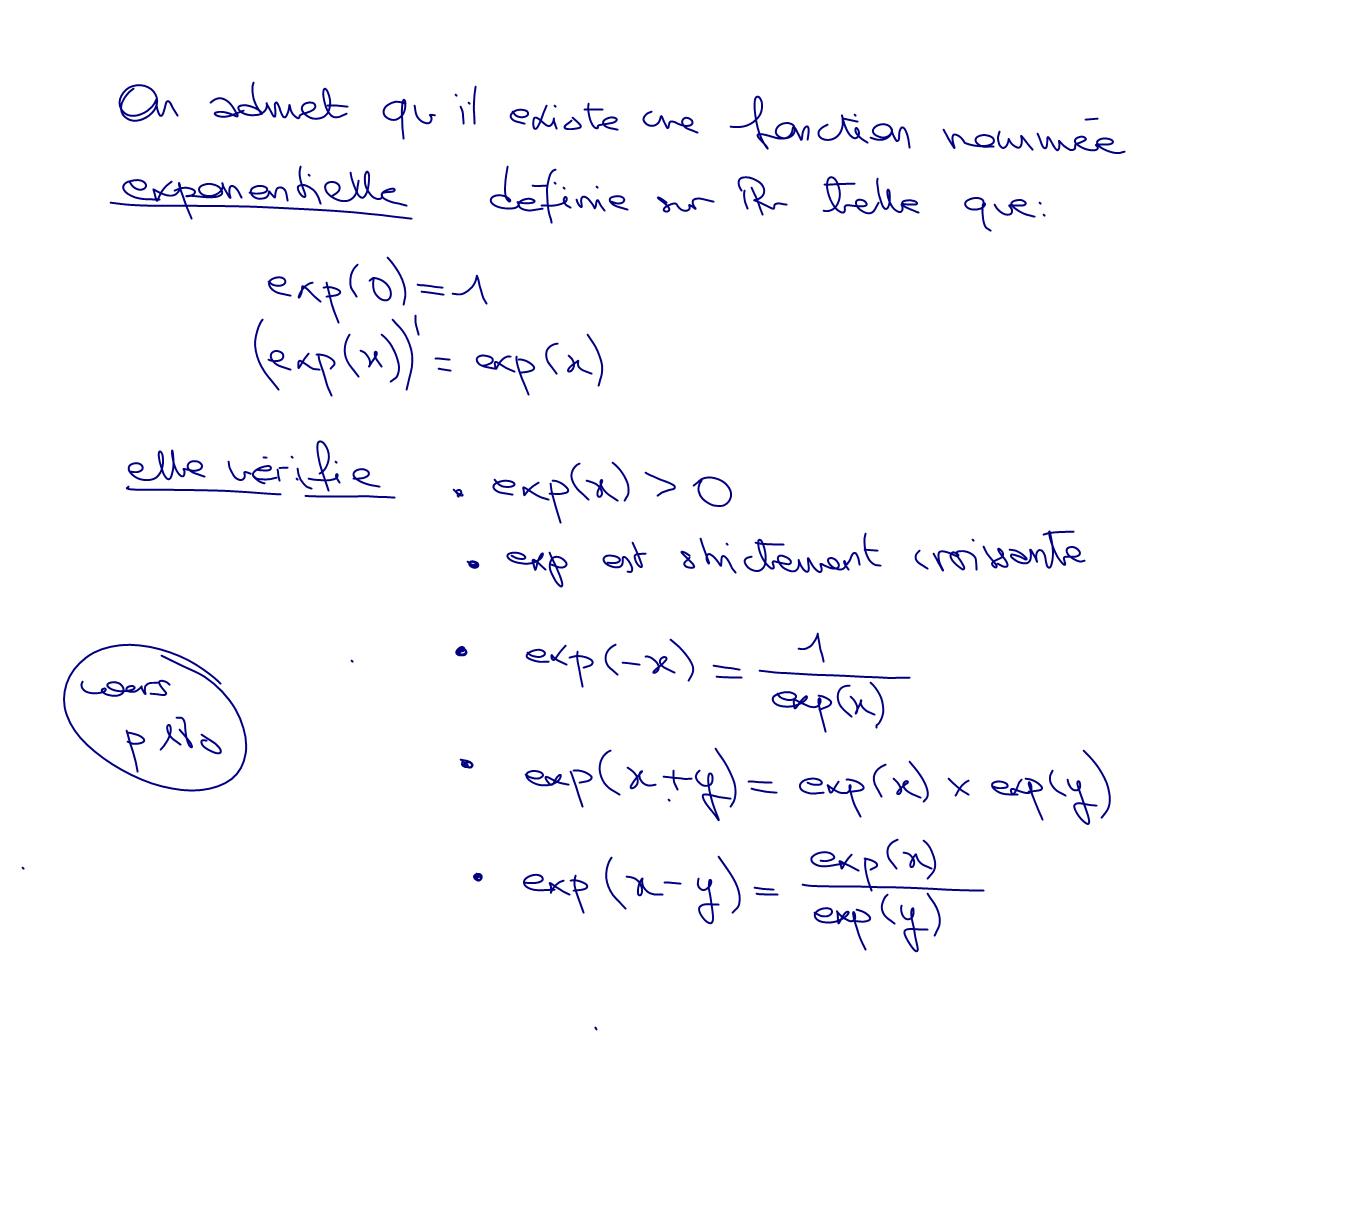 On admet qu'il existe une fonction nommée
exponentielle définie sur ℝ telle que:
exp(0)=1
(exp(x))' = exp(x)
elle vérifie . exp(x) > 0
• exp est strictement croissante
• exp(-x) = 1/exp(x)
cours
p
• exp(x+y) = exp(x) × exp(y)
• exp(x-y) = exp(x)/exp(y)